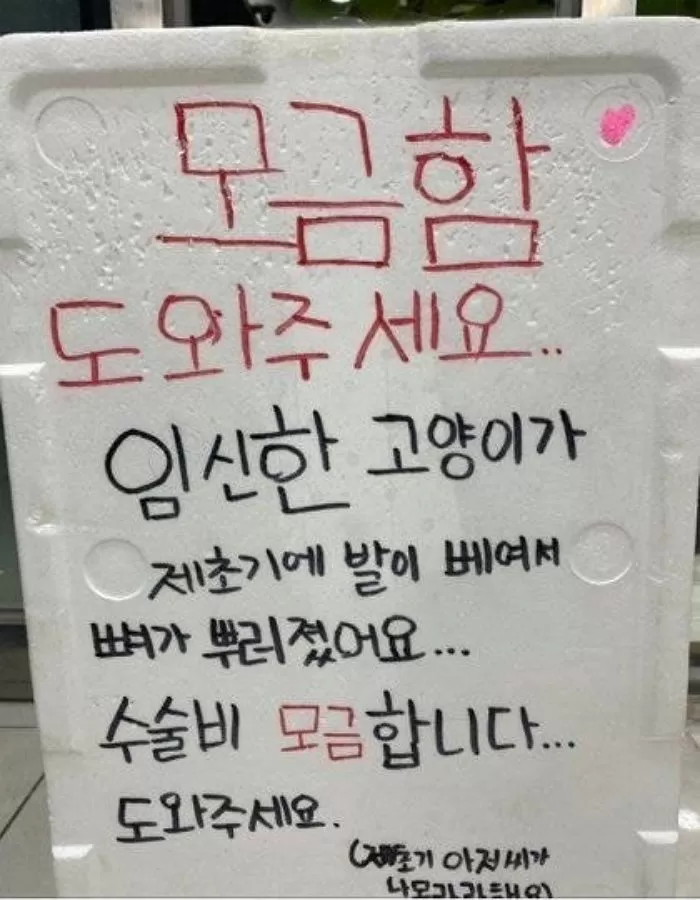 모금함
도와주세요..
임신한 고양이가
제초기에 발이 베여서
뼈가 뿌러졌어요...
수술비 모금합니다...
도와주세요.
(제초기 아저씨가